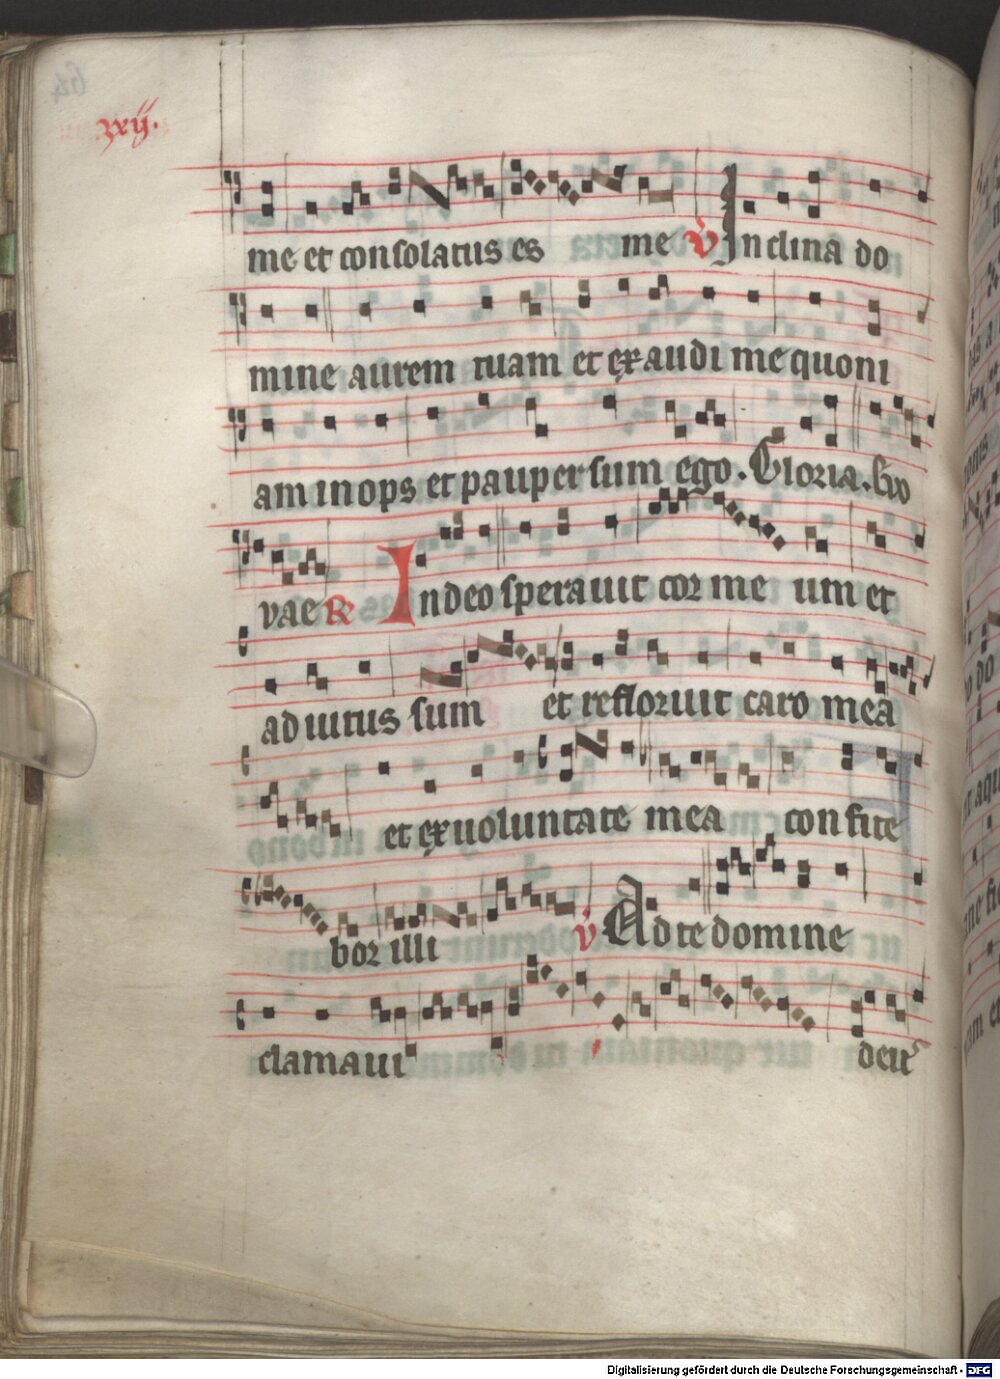 xxij.
me et consolatus es me V Inclina do
mine aurem tuam et exaudi me quoni
am inops et pauper sum ego. Gloria. Evo
vae R In deo speravit cor me um et
adiutus sum et refloruit caro mea
et ex uoluntate mea confite
bor illi V Ad te domine
clamaui deus
Digitalisierung gefördert durch die Deutsche Forschungsgemeinschaft - DFG